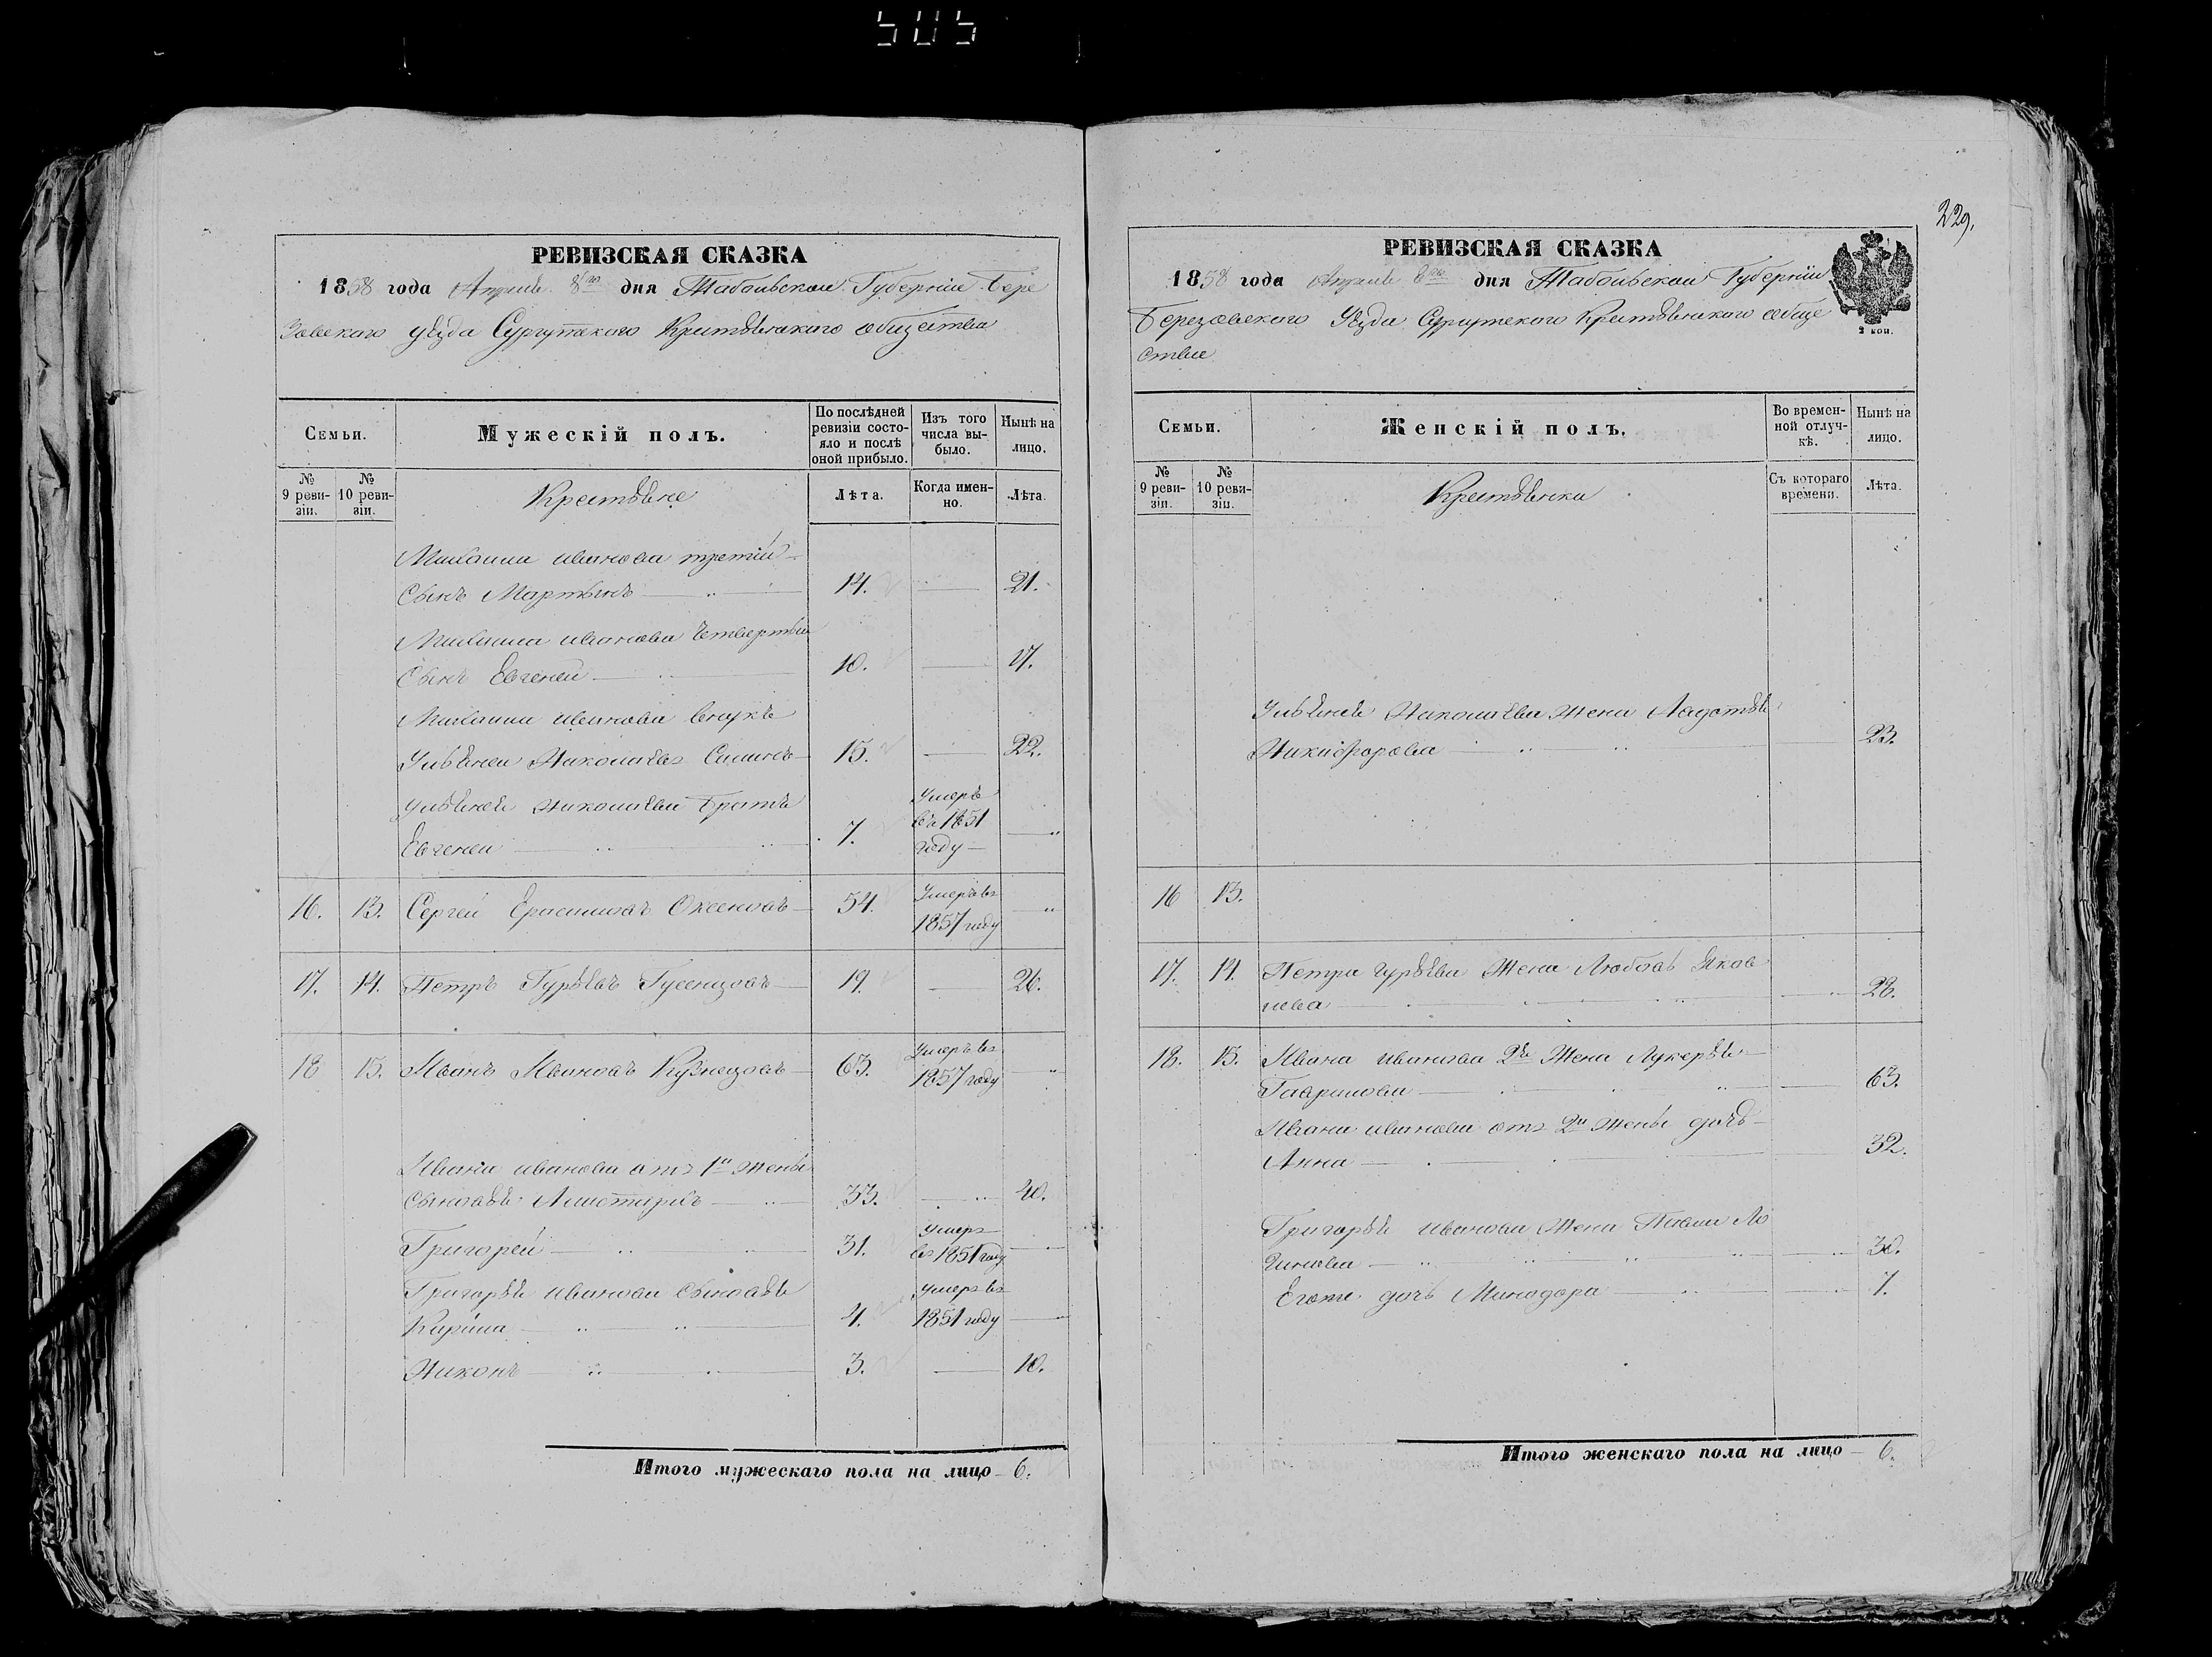 505
229.
РЕВИЗСКАЯ СКАЗКА
1858 года Апреля 8го дня Тобольской Губернии Бере
зовскаго уезда Сургутскаго Крестьянскаго общества
Семьи.
Мужескій полъ.
По послѣдней ревизіи состояло и послѣ оной прибыло.
Изъ того числа выбыло.
Нынѣ на лицо.
№ 9 ревизіи.
№ 10 ревизіи.
Крестьяне
Лѣта.
Когда именно.
Лѣта.
Михаила иванова третій
Сынъ Мартынъ 14. — 21.
Михаила иванова Четвертый
Сынъ Евгеней 10. — 17.
Михаила иванова внукъ
Ульяней Николаевъ 15. — 22.
Ульянея Николаева Братъ
Евгеней 7. Умеръ въ 1851 году — "
16. 13. Сергей Ерасимовъ Оксеновъ 54. Умеръ въ 1857 году — "
17. 14. Петръ Гурьевъ Гусенцовъ 19. — 26.
18 15. Иванъ Ивановъ Кузнецовъ 63. Умеръ въ 1857 году — "
Ивана иванова отъ 1й жены
Сыновья 33. — 40.
Григорей 31. Умеръ въ 1851 году —
Григорья иванова Сыновья
Кирила 4. умеръ въ 1851 году —
Никонъ 3. — 10.
Итого мужескаго пола на лицо 6.
РЕВИЗСКАЯ СКАЗКА
1858 года Апреля 8го дня Тобольской Губернии
Березовскаго Уезда Сургутскаго Крестьянскаго обще
ства
2 коп.
Семьи.
Женскій полъ.
Во временной отлучкѣ.
Нынѣ на лицо.
№ 9 ревизіи.
№ 10 ревизіи.
Крестьянки
Съ котораго времени.
Лѣта.
Ульянея Николаева жена
Никифорова 23.
16 13.
17. 14. Петра гурьева жена Любовь Яков
лева 28.
18. 15. Ивана иванова 2я жена Лукерья
Гаврилова 63.
Ивана иванова отъ 2й жены дочь
Анна 32.
Григорья иванова жена Павла Ло
гинова 30.
Егоже дочь Минодора 7.
Итого женскаго пола на лицо 6.